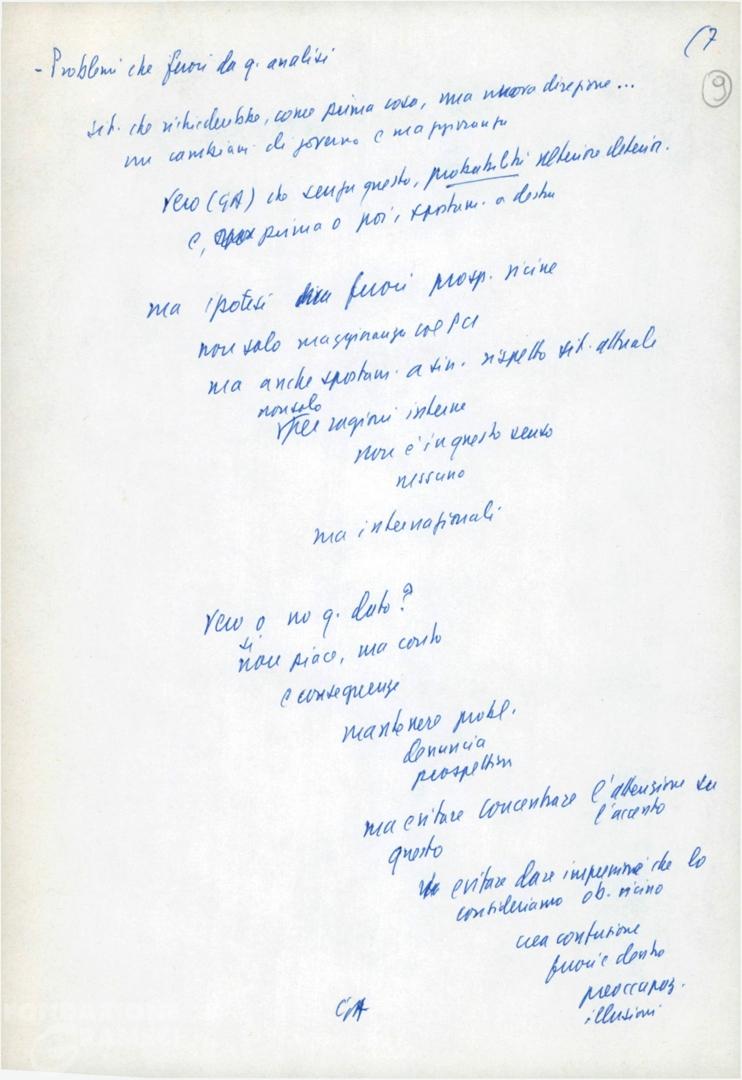 (7
9
- Problemi che fuori da q. analisi
sit. che richiederebbe, come prima cosa, una nuova direzione...
un cambiam. di governo e maggioranza
Vero (GA) che senza questo, probabilità ulteriore deterior.
e, prima o poi, spostam. a destra
ma ipotesi fuori prosp. vicine
non solo maggioranza col PCI
ma anche spostam. a sin. rispetto sit. attuale
non solo
per ragioni interne
non è in questo senso
nessuno
ma internazionali
Vero o no q. dato?
si
non piace, ma conto
e conseguenze
mantenere probl.
denuncia
prospettiva
ma evitare concentrare l'attenzione su
l'accento
questo
evitare dare impressione che lo
consideriamo ob. vicino
crea confusione
fuori e dentro
preoccupaz.
illusioni
GA
FONDAZIONE
GRAMSCI